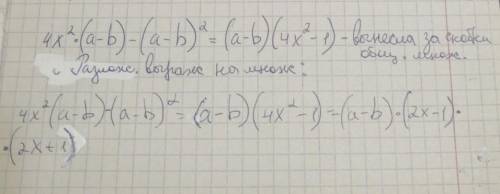 4x²·(a-b)-(a-b)² = (a-b)(4x²-1) - вынесла за скобки
общ. множ.
Разлож. выраж на множ:
4x²(a-b)-(a-b)² = (a-b)(4x²-1) = (a-b)·(2x-1)·
·(2x+1)